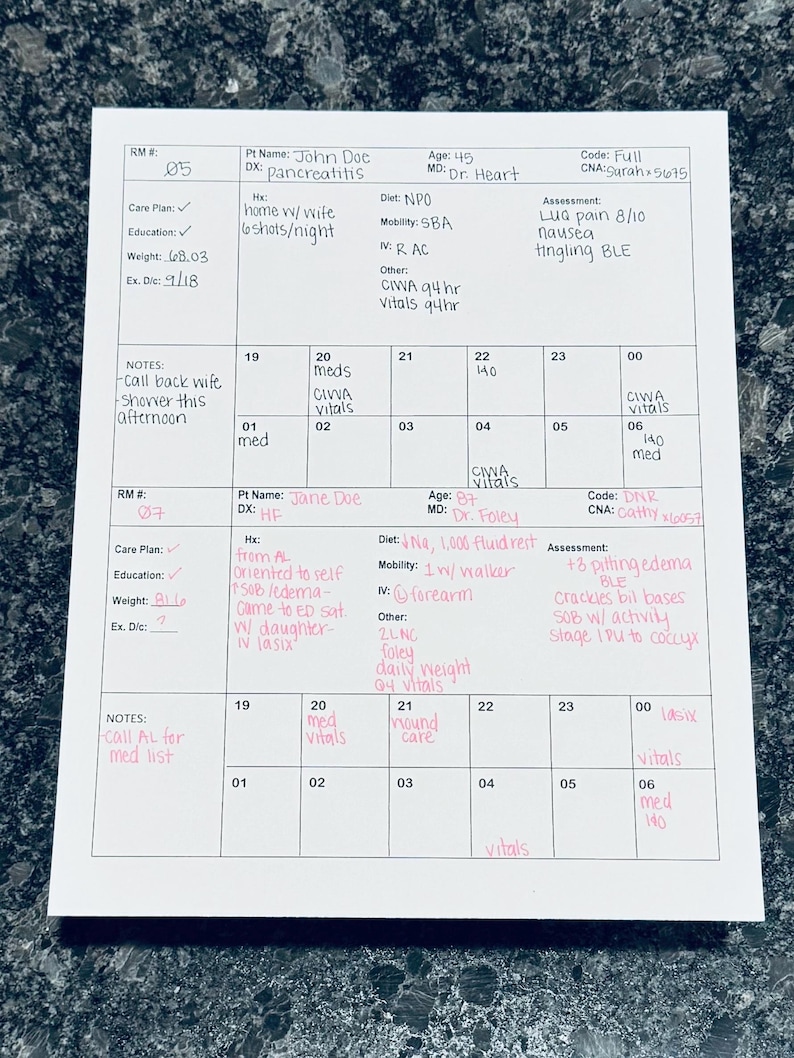 RM #: 05
Pt Name: John Doe Age: 45 Code: Full
DX: pancreatitis MD: Dr. Heart CNA: Sarah x5675
Care Plan: ✓
Education: ✓
Weight: 68.03
Ex. D/c: 9/18
Hx:
home w/ wife
6 shots/night
Diet: NPO
Mobility: SBA
IV: R AC
Other:
CIWA q4hr
vitals q4hr
Assessment:
LUQ pain 8/10
nausea
tingling BLE
NOTES:
-Call back wife
-Shower this
afternoon
19
20
meds
CIWA
vitals
21
22
I&O
23
00
CIWA
vitals
01
med
02
03
04
CIWA
vitals
05
06
I&O
med
RM #: 07
Pt Name: Jane Doe Age: 87 Code: DNR
DX: HF MD: Dr. Foley CNA: Cathy x6057
Care Plan: ✓
Education: ✓
Weight: 81.6
Ex. D/c: ?
Hx:
from AL
oriented to self
↑SOB/edema-
Came to ED Sat.
w/ daughter-
IV lasix
Diet: ↓Na, 1,000 fluid rest
Mobility: 1 w/ walker
IV: Ⓛ forearm
Other:
2L NC
foley
daily weight
Q4 vitals
Assessment:
+3 pitting edema
BLE
crackles bil bases
SOB w/ activity
Stage 1 PU to coccyx
NOTES:
-Call AL for
med list
19
20
med
vitals
21
wound
care
22
23
00 lasix
vitals
01
02
03
04
vitals
05
06
med
I&O